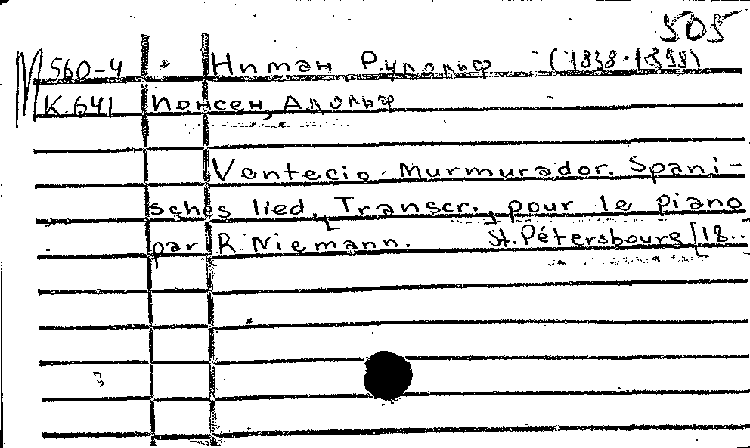 505
М 560-4 Ниман Рудольф (1838-1898)
К.641 Йенсен, Адольф
Ventecio Murmurador. Spani-
sches lied. Transcr. pour le piano
par R. Niemann. St. Pétersbourg [18..